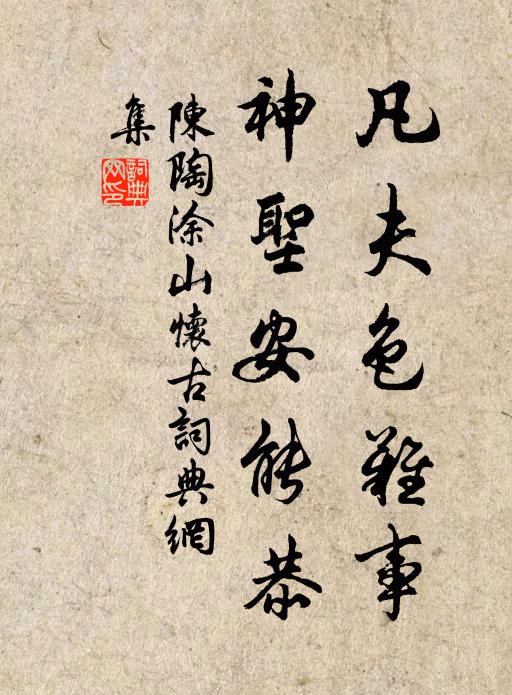 凡夫色難事
神聖安能恭
陳陶涂山懷古詞典網
集
詞典
網印